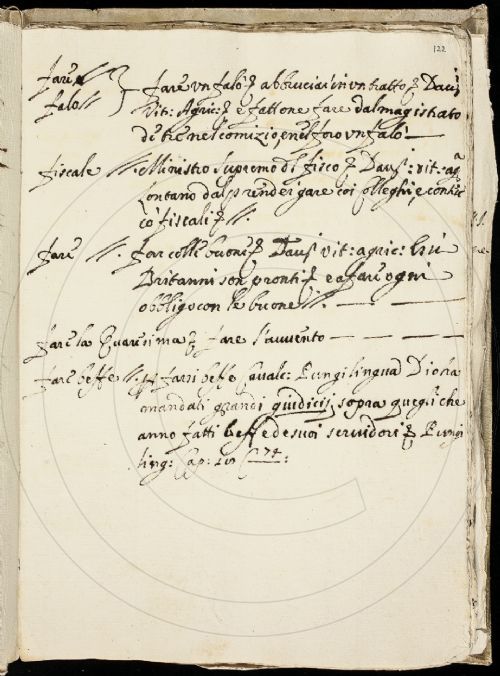 122
fare
falò
fare un falò ꝑ abbruciar in un tratto ꝑ Dav:
Vit: Agric: ꝑ e fattone fare dal magistrato
de tre nel comizio, e nel foro un falò
fiscale Ministro supremo del fisco ꝑ Dav: vit: ag
Lontano dal prender gare coi colleghi, e
co' fiscali ꝑ
fare far colle buone ꝑ Dav: vit: agric: 
Britanni son pronti ꝑ e a fare ogni
obbligo con le buone
fare la Quaresima ꝑ fare l'avvento
fare beffe ꝑ farsi beffe Cavalc: Pungilingua Dio ha
mandati grandi giudicij, sopra quegli che
anno fatti beffe de suoi servidori ꝑ Pungi
ling: Cap: